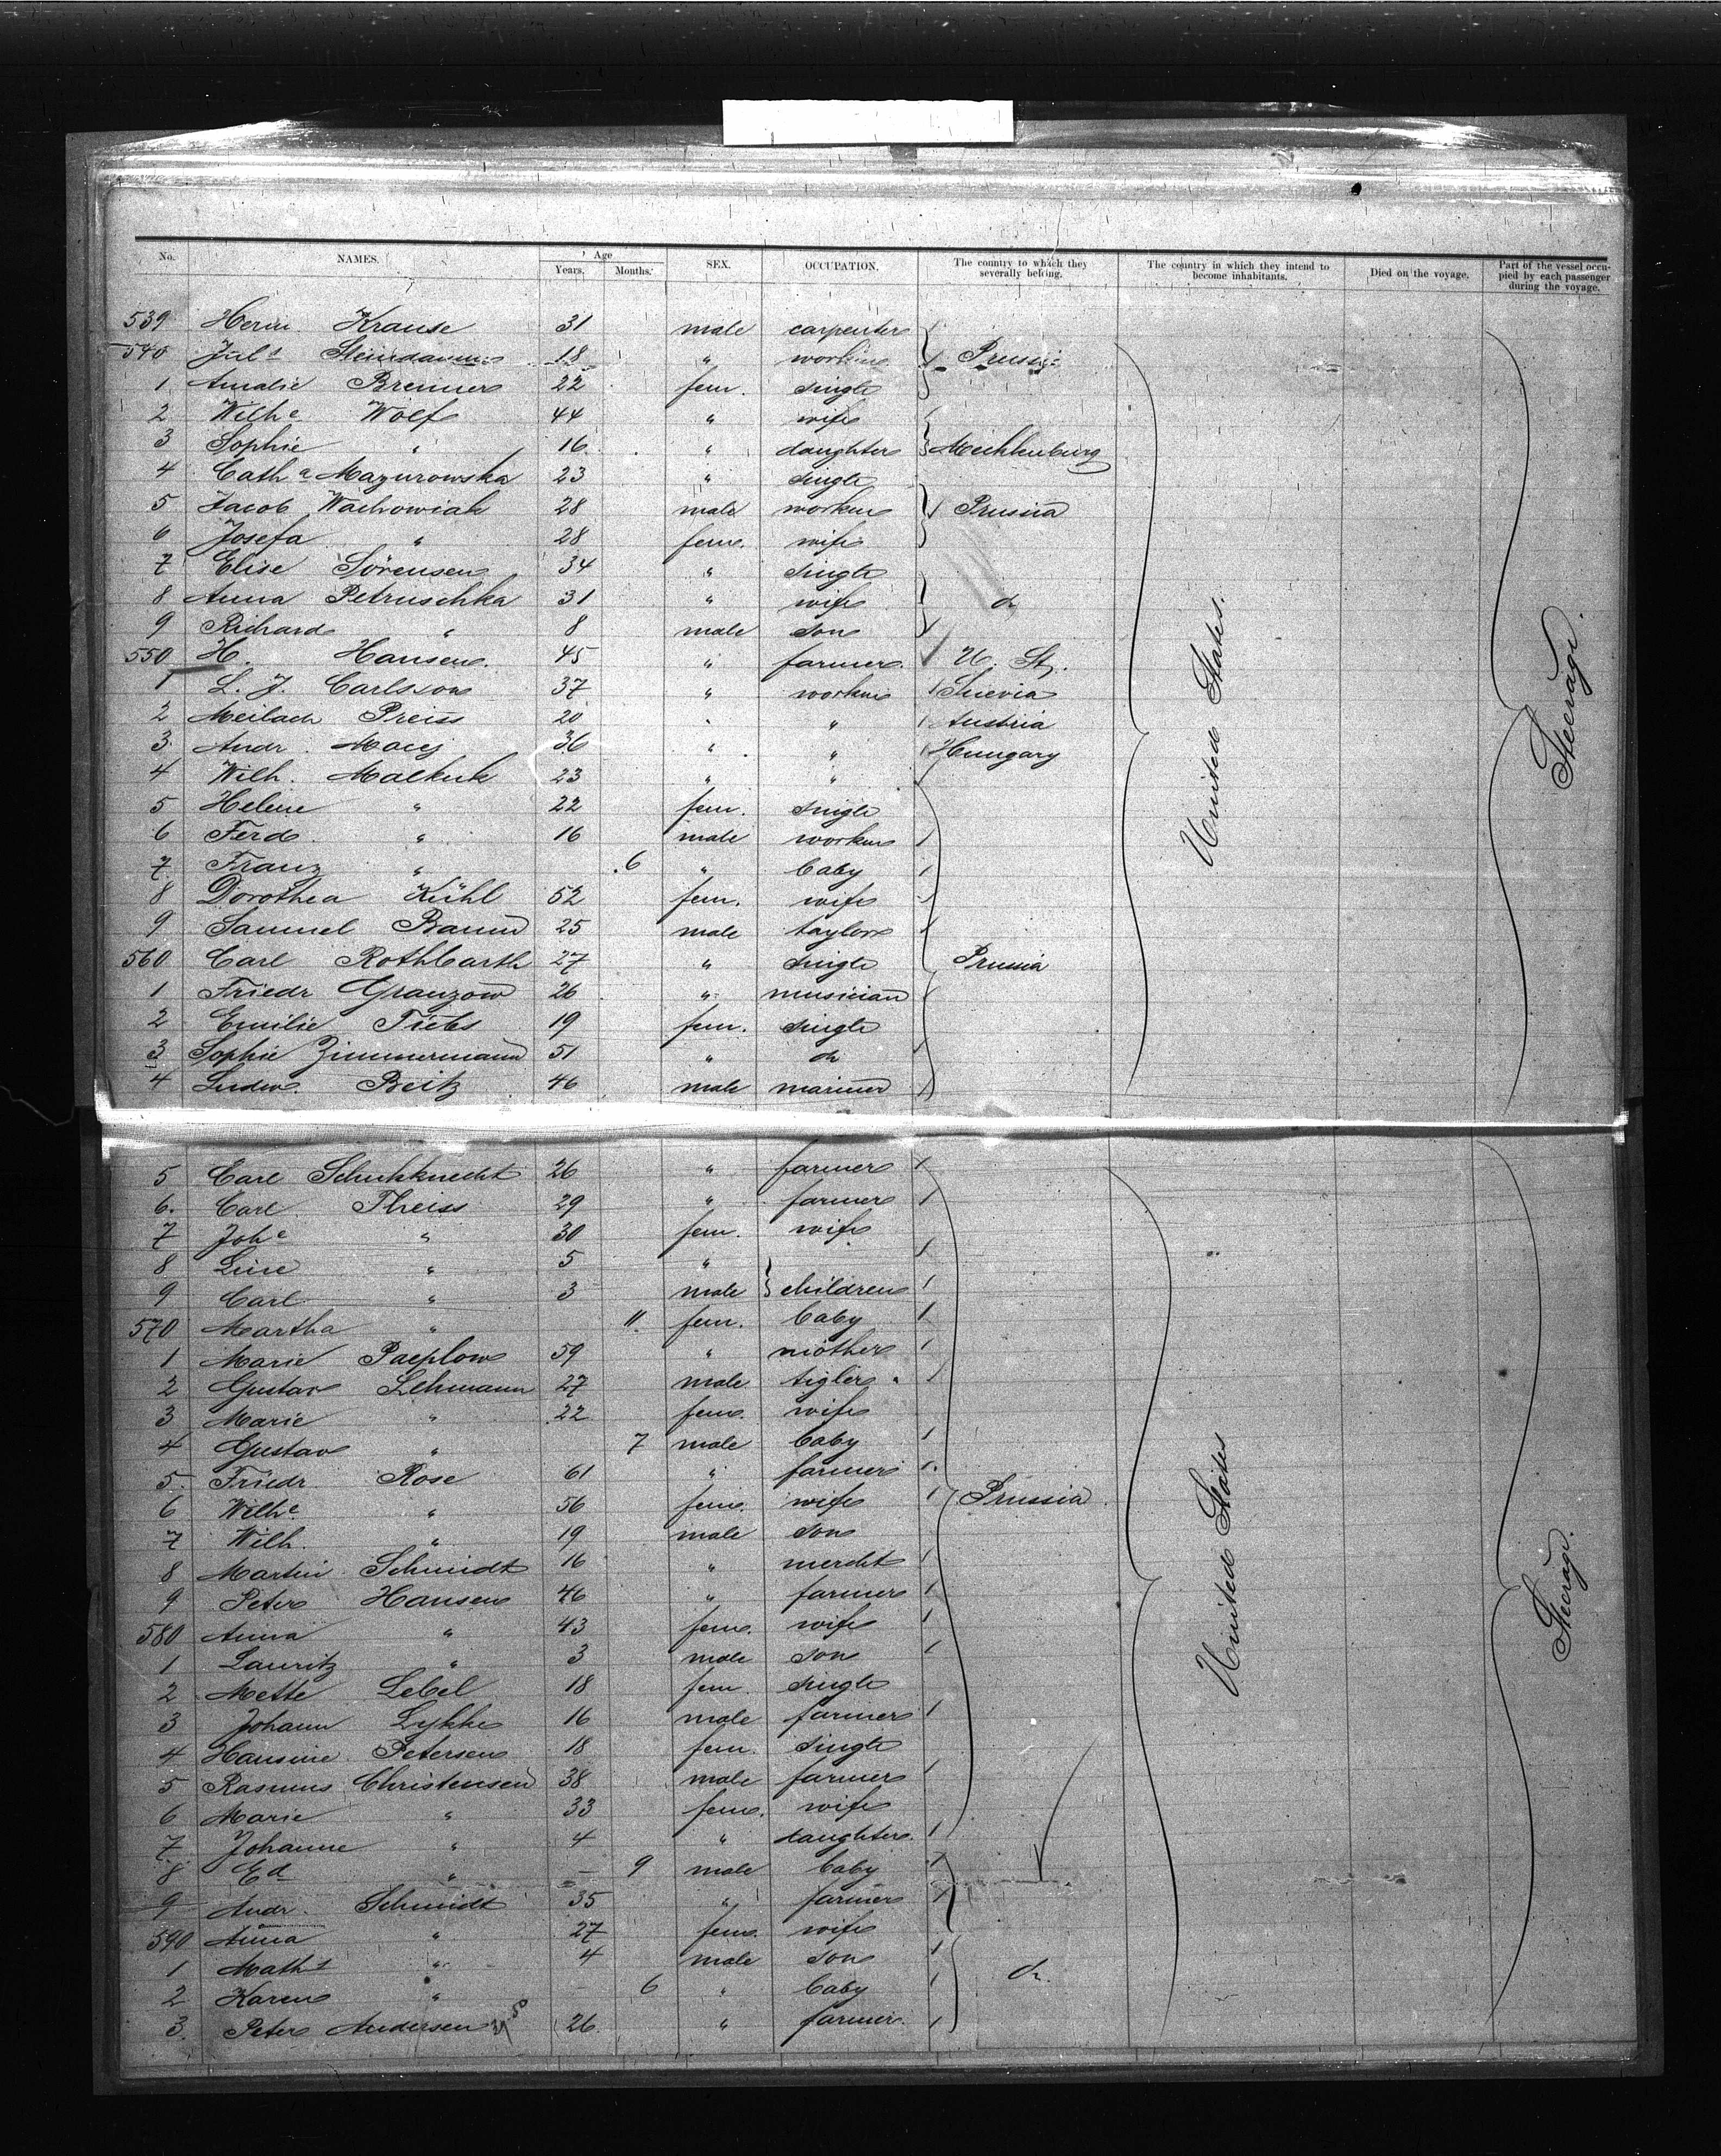 No. NAMES. Age Years. Months. SEX. OCCUPATION. The country to which they severally belong. The country in which they intend to become inhabitants. Died on the voyage. Part of the vessel occupied by each passenger during the voyage.
539 Herm. Krause 31 male carpenter
540 Juls 18 " Prussia
1 Amalie Bremer 22 fem. single
2 Wilhe Wolf 44 " wife
3 Sophie " 16 " daughter Mecklenburg
4 Catha Mazurowska 23 " single
5 Jacob Wachowiak 28 male worker Prussia
6 Josefa " 28 fem. wife
7 Elise Sörensen 34 " single
8 Anna Petruschka 31 " wife do
9 Richard " 8 male son
550 H. Hansen. 45 " farmer. U. St.
1 L. J. Carlsson 37 " worker Suevia
2 Meilach Preiss 20 " " Austria
3 Andr. Macej 36 " " Hungary
4 Wilh. 23 " "
5 Helene " 22 fem. single
6 Ferd. " 16 male worker
7 Franz " 6 " baby
8 Dorothea Kühl 52 fem. wife
9 Samuel 25 male taylor
560 Carl Rothbarth 27 " single Prussia
1 Friedr Granzow 26 " musician
2 Emilie Tiebs 19 fem. single
3 Sophie Zimmermann 51 " do
4 Ludw. Beitz 46 male mariner
United States.
Steerage.
5 Carl Schuhknecht 26 " farmer
6. Carl Theiss 29 " farmer
7 Johe " 30 fem. wife
8 Line " 5 "
9 Carl " 3 male children
570 Martha " 11. fem. baby
1 Marie Paeplow 59 " mother
2 Gustav Lehmann 27 male tigler
3 Marie " 22 fem. wife
4 Gustav " 7 male baby
5 Friedr Rose 61 " farmer
6 Wilhe " 56 fem. wife Prussia
7 Wilh. " 19 male son
8 Martin Schmidt 16 " mercht
9 Peter Hansen 46 " farmer
580 Anna " 43 fem. wife
1 Lauritz " 3 male son
2 Mette Lebel 18 fem. single
3 Johann Lykke 16 male farmer
4 Hansine Petersen 18 fem. single
5 Rasmus Christensen 38 male farmer
6 Marie " 33 fem. wife
7 Johanne " 4 " daughter.
8 Ed " — 9 male baby
9 Andr. Schmidt 35 " farmer
590 Anna " 27 fem. wife
1 Maths " 4 male son do.
2 Karen " 6 " baby
3. Peter Andersen 26 " farmer.
United States
Steerage.